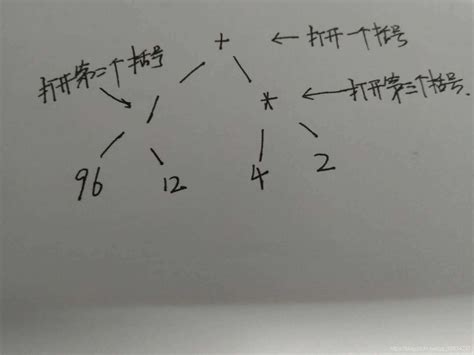 + ← 打开一个括号
打开第二个括号
/ * ← 打开第三个括号.
96 12 4 2